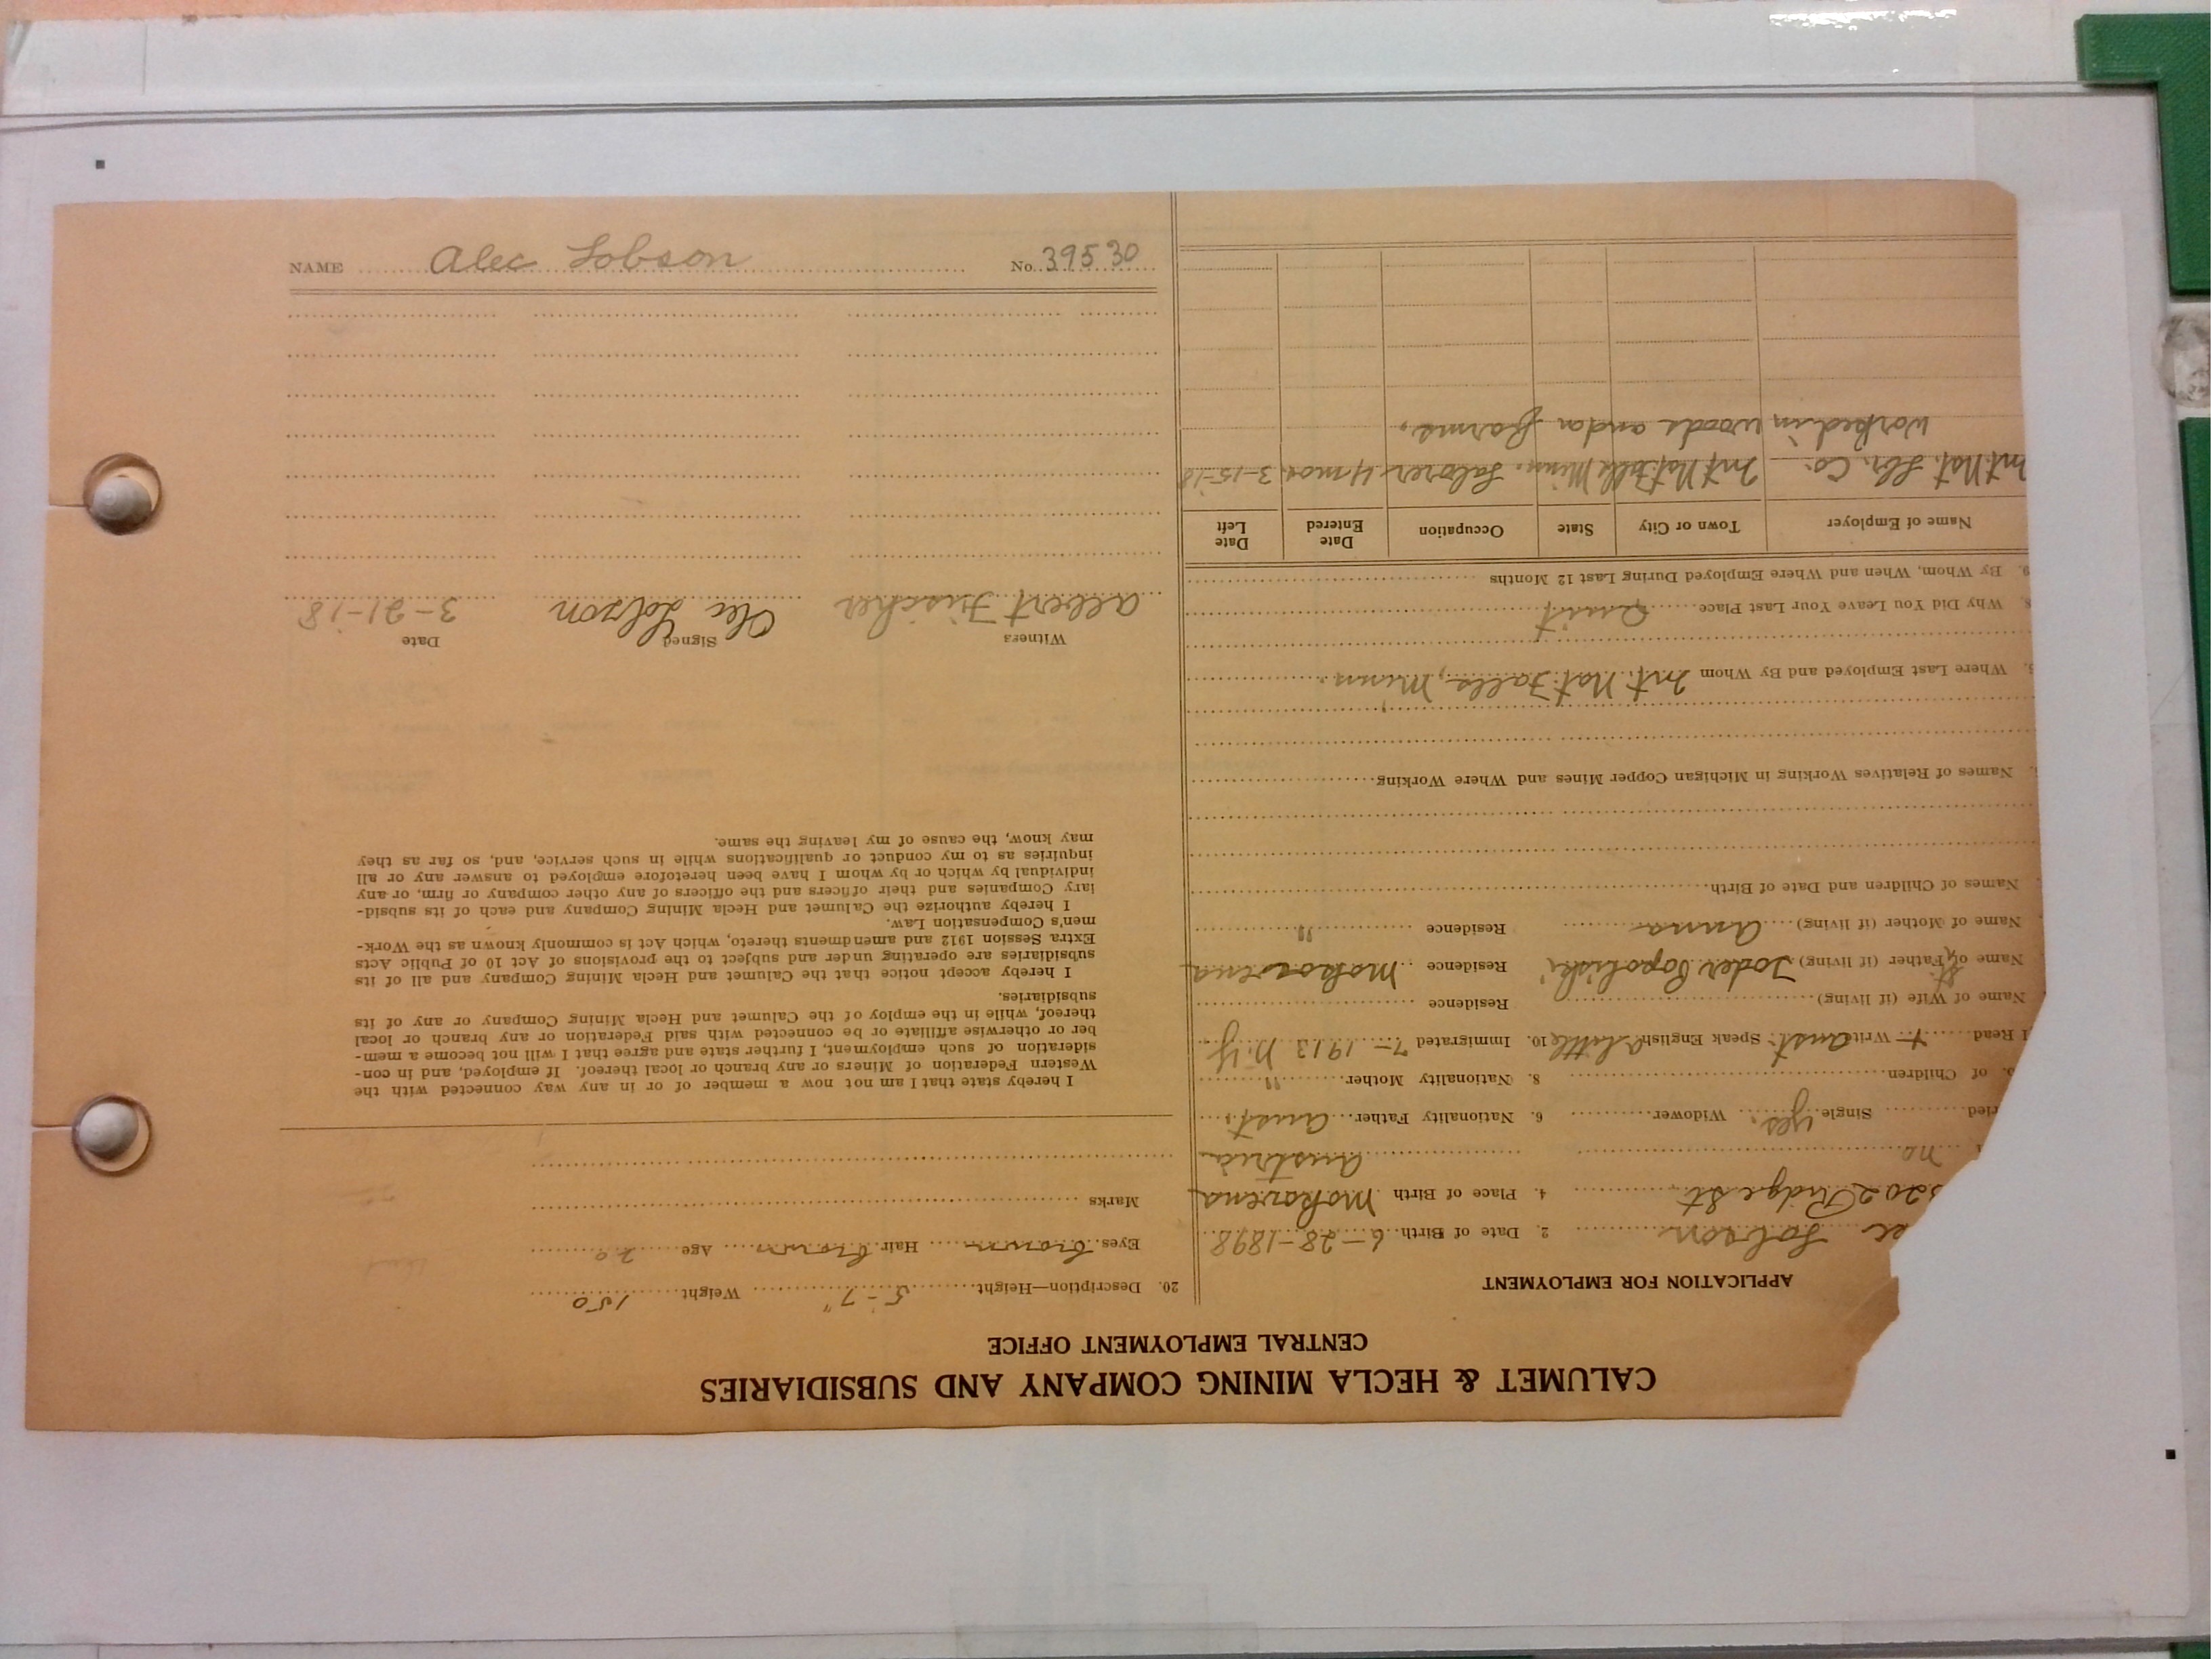 NAME Alec Lobson No. 39530
CALUMET & HECLA MINING COMPANY AND SUBSIDIARIES
CENTRAL EMPLOYMENT OFFICE
APPLICATION FOR EMPLOYMENT
Lobson 2. Date of Birth 6-28-1898
202 Ridge St 4. Place of Birth Mokavena
no Austria
Single yes. Widower 6. Nationality Father Aust.
of Children 8. Nationality Mother "
Read + Write Aust. Speak English Little 10. Immigrated 7-1913 N.Y.
Name of Wife (if living) Residence
Name of St. Father (if living) Toder Popoliski Residence Mokavena
Name of Mother (if living) Anna Residence "
Names of Children and Date of Birth
Names of Relatives Working in Michigan Copper Mines and Where Working
Where Last Employed and By Whom Int. Nat. Falls, Minn.
Why Did You Leave Your Last Place Quit
9. By Whom, When and Where Employed During Last 12 Months
Name of Employer Town or City State Occupation Date Entered Date Left
Int. Nat. Lbr. Co. Int Nat Falls Minn. Laborer 4 mos. 3-15-18
Worked in woods and on farms.
20. Description—Height 5-7" Weight 150
Eyes brown Hair brown Age 20
Marks
I hereby state that I am not now a member of or in any way connected with the
Western Federation of Miners or any branch or local thereof. If employed, and in con-
sideration of such employment, I further state and agree that I will not become a mem-
ber or otherwise affiliate or be connected with said Federation or any branch or local
thereof, while in the employ of the Calumet and Hecla Mining Company or any of its
subsidiaries.
I hereby accept notice that the Calumet and Hecla Mining Company and all of its
subsidiaries are operating under and subject to the provisions of Act 10 of Public Acts
Extra Session 1912 and amendments thereto, which Act is commonly known as the Work-
men's Compensation Law.
I hereby authorize the Calumet and Hecla Mining Company and each of its subsid-
iary Companies and their officers and the officers of any other company or firm, or any
individual by which or by whom I have been heretofore employed to answer any or all
inquiries as to my conduct or qualifications while in such service, and, so far as they
may know, the cause of my leaving the same.
Witness Signed Date
Albert Fischer Alec Lobson 3-21-18